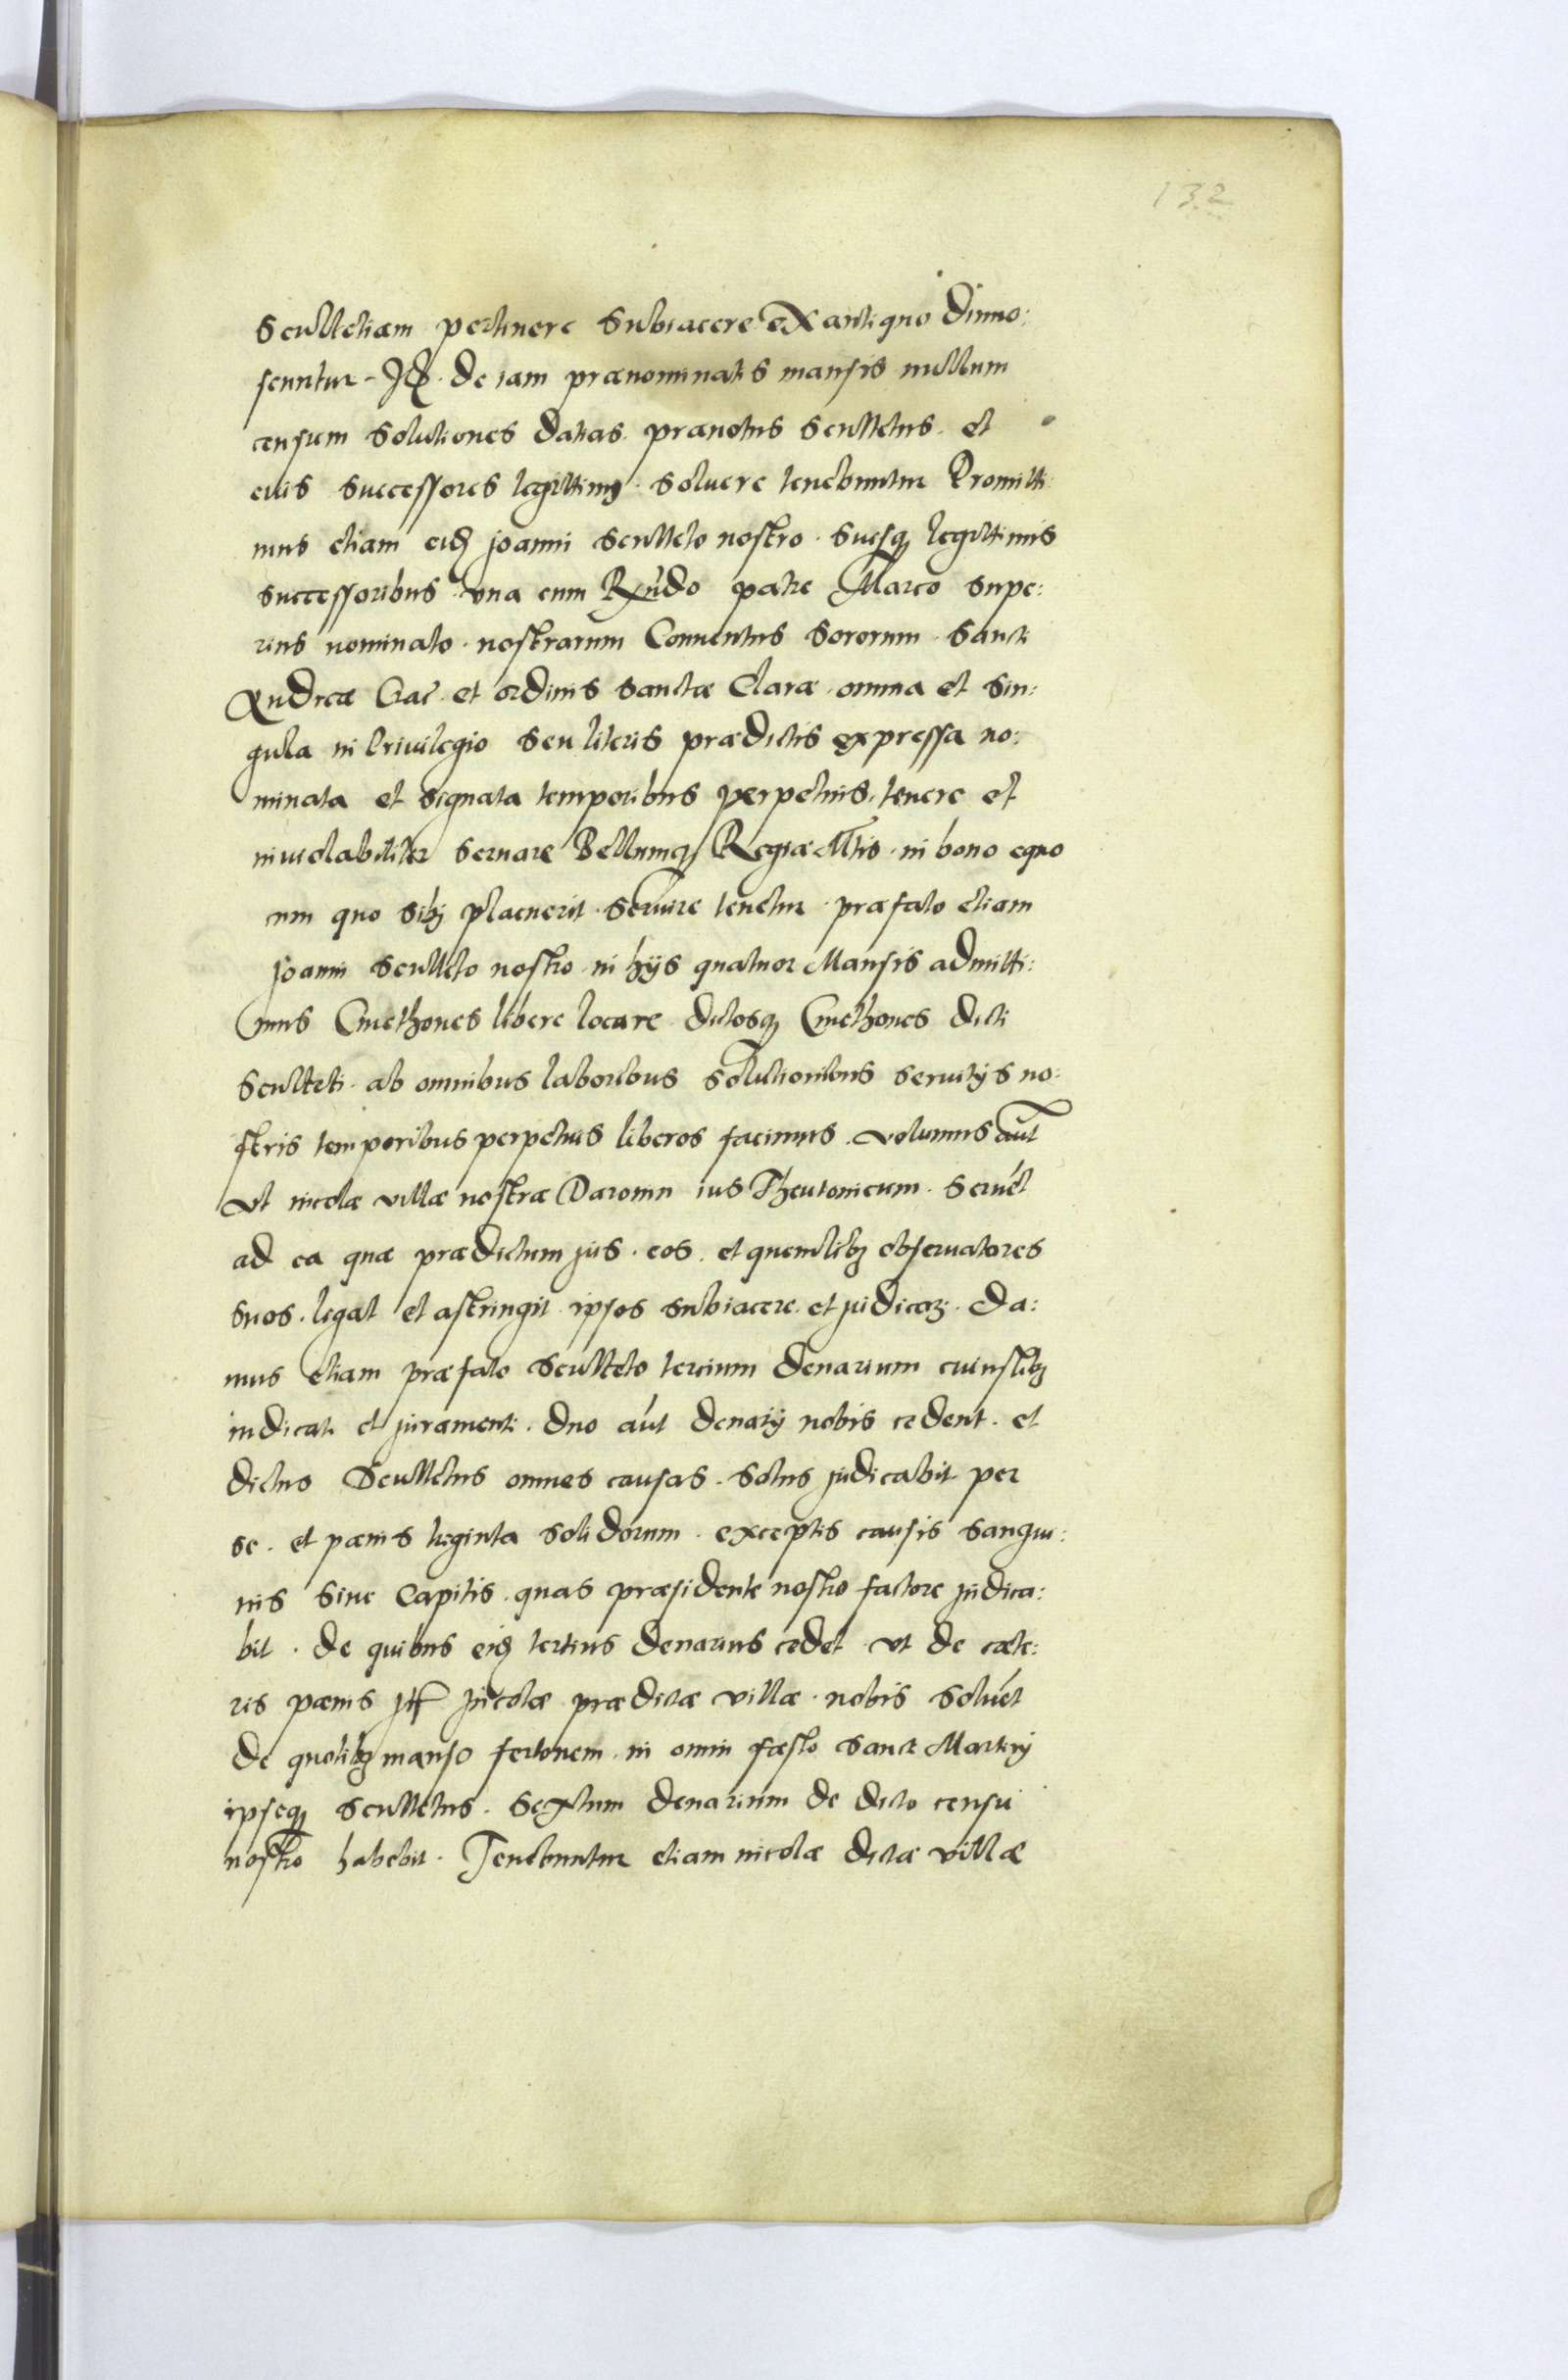 132
Scultetiam pertinere subiacere ex antiquo dinno:
scuntur. Itē de iam prænominatis mansis nullum
censum solutiones datias prænotus Scultetus et
euis successores legittimj soluere tenebuntur Promitti
mus etiam eidē joanni Sculteto nostro suisq3 legittimis
successoribus vna cum Rñdo patre Marco supe:
rius nominato nostrarum Conuentus Sororum Sancti
Andreæ Crac̃ et ordinis Sanctæ Claræ omnia et sin:
gula in Priuilegio seu literis prædictis expressa no:
minata et signata temporibus perpetuis tenere et
inuiolabiliter seruare Bellumq3 Regiæ Mtis in bono equo
cum quo sibj placuerit seruire tenetur præfato etiam
joanni Sculteto nostro in hijs quatuor Mansis admitti:
mus Cmethones libere locare dictosq3 Cmethones dicti
Sculteti ab omnibus laboribus solutionibus seruitijs no:
stris temporibus perpetuis liberos facimus. volumus aūt
vt incolæ villæ nostræ Daromin ius Theutonicum seruēt
ad ea quæ prædictum jus eos et quemlib3 obseruatores
suos legat et astringit ipsos subiacere et judicarj. Da:
mus etiam præfato Sculteto tercium denarium cuiuslib3
iudicati et juramenti. duo aūt denarij nobis cedent et
dictus Scultetus omnes causas solus judicabit per
se et pænis triginta solidorum exceptis causis sangui:
nis siue capitis quas præsidente nostro factore judica:
bit. de quibus eidē tertius denarius cedet vt de cæte:
ris pænis Itē Incolæ prædictæ villæ nobis soluēt
de quolib3 manso fertonem in omni fæsto Sancti Martinj
ipseq3 Scultetus. Sextum denarium de dicto censu
nostro habebit. Tenebuntur etiam incolæ dictæ villæ